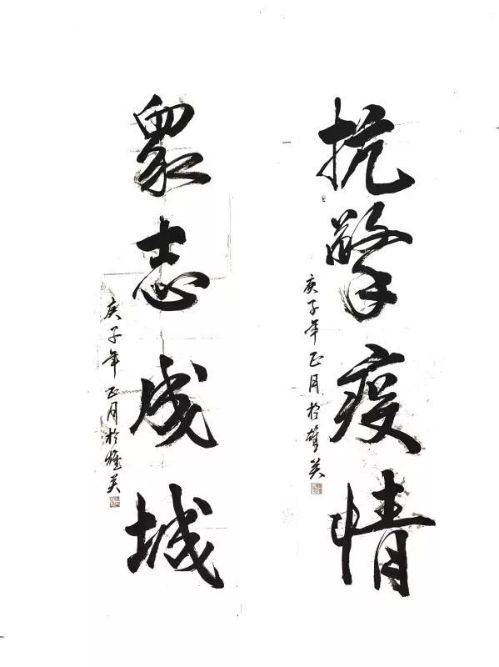 抗擊疫情
庚子年正月於雄关
眾志成城
庚子年正月於雄关